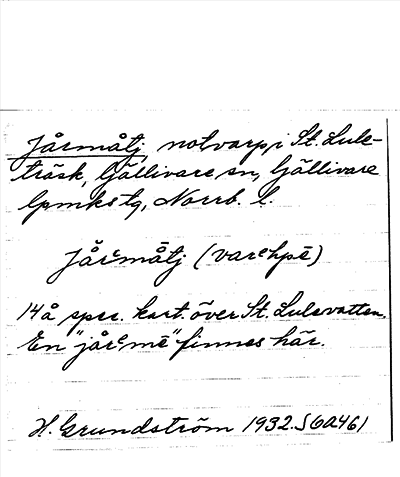 Jårmåtj, notvarp, i St. Lule-
träsk, Gällivare sn, Gällivare
lpmks tg, Norrb. l.
Jårᵋmātj (varᵋhpē)
14 å spec. kart. över St. Lulevatten.
En "jårᵋmē" finnes här.
H. Grundström 1932. S(6a46)